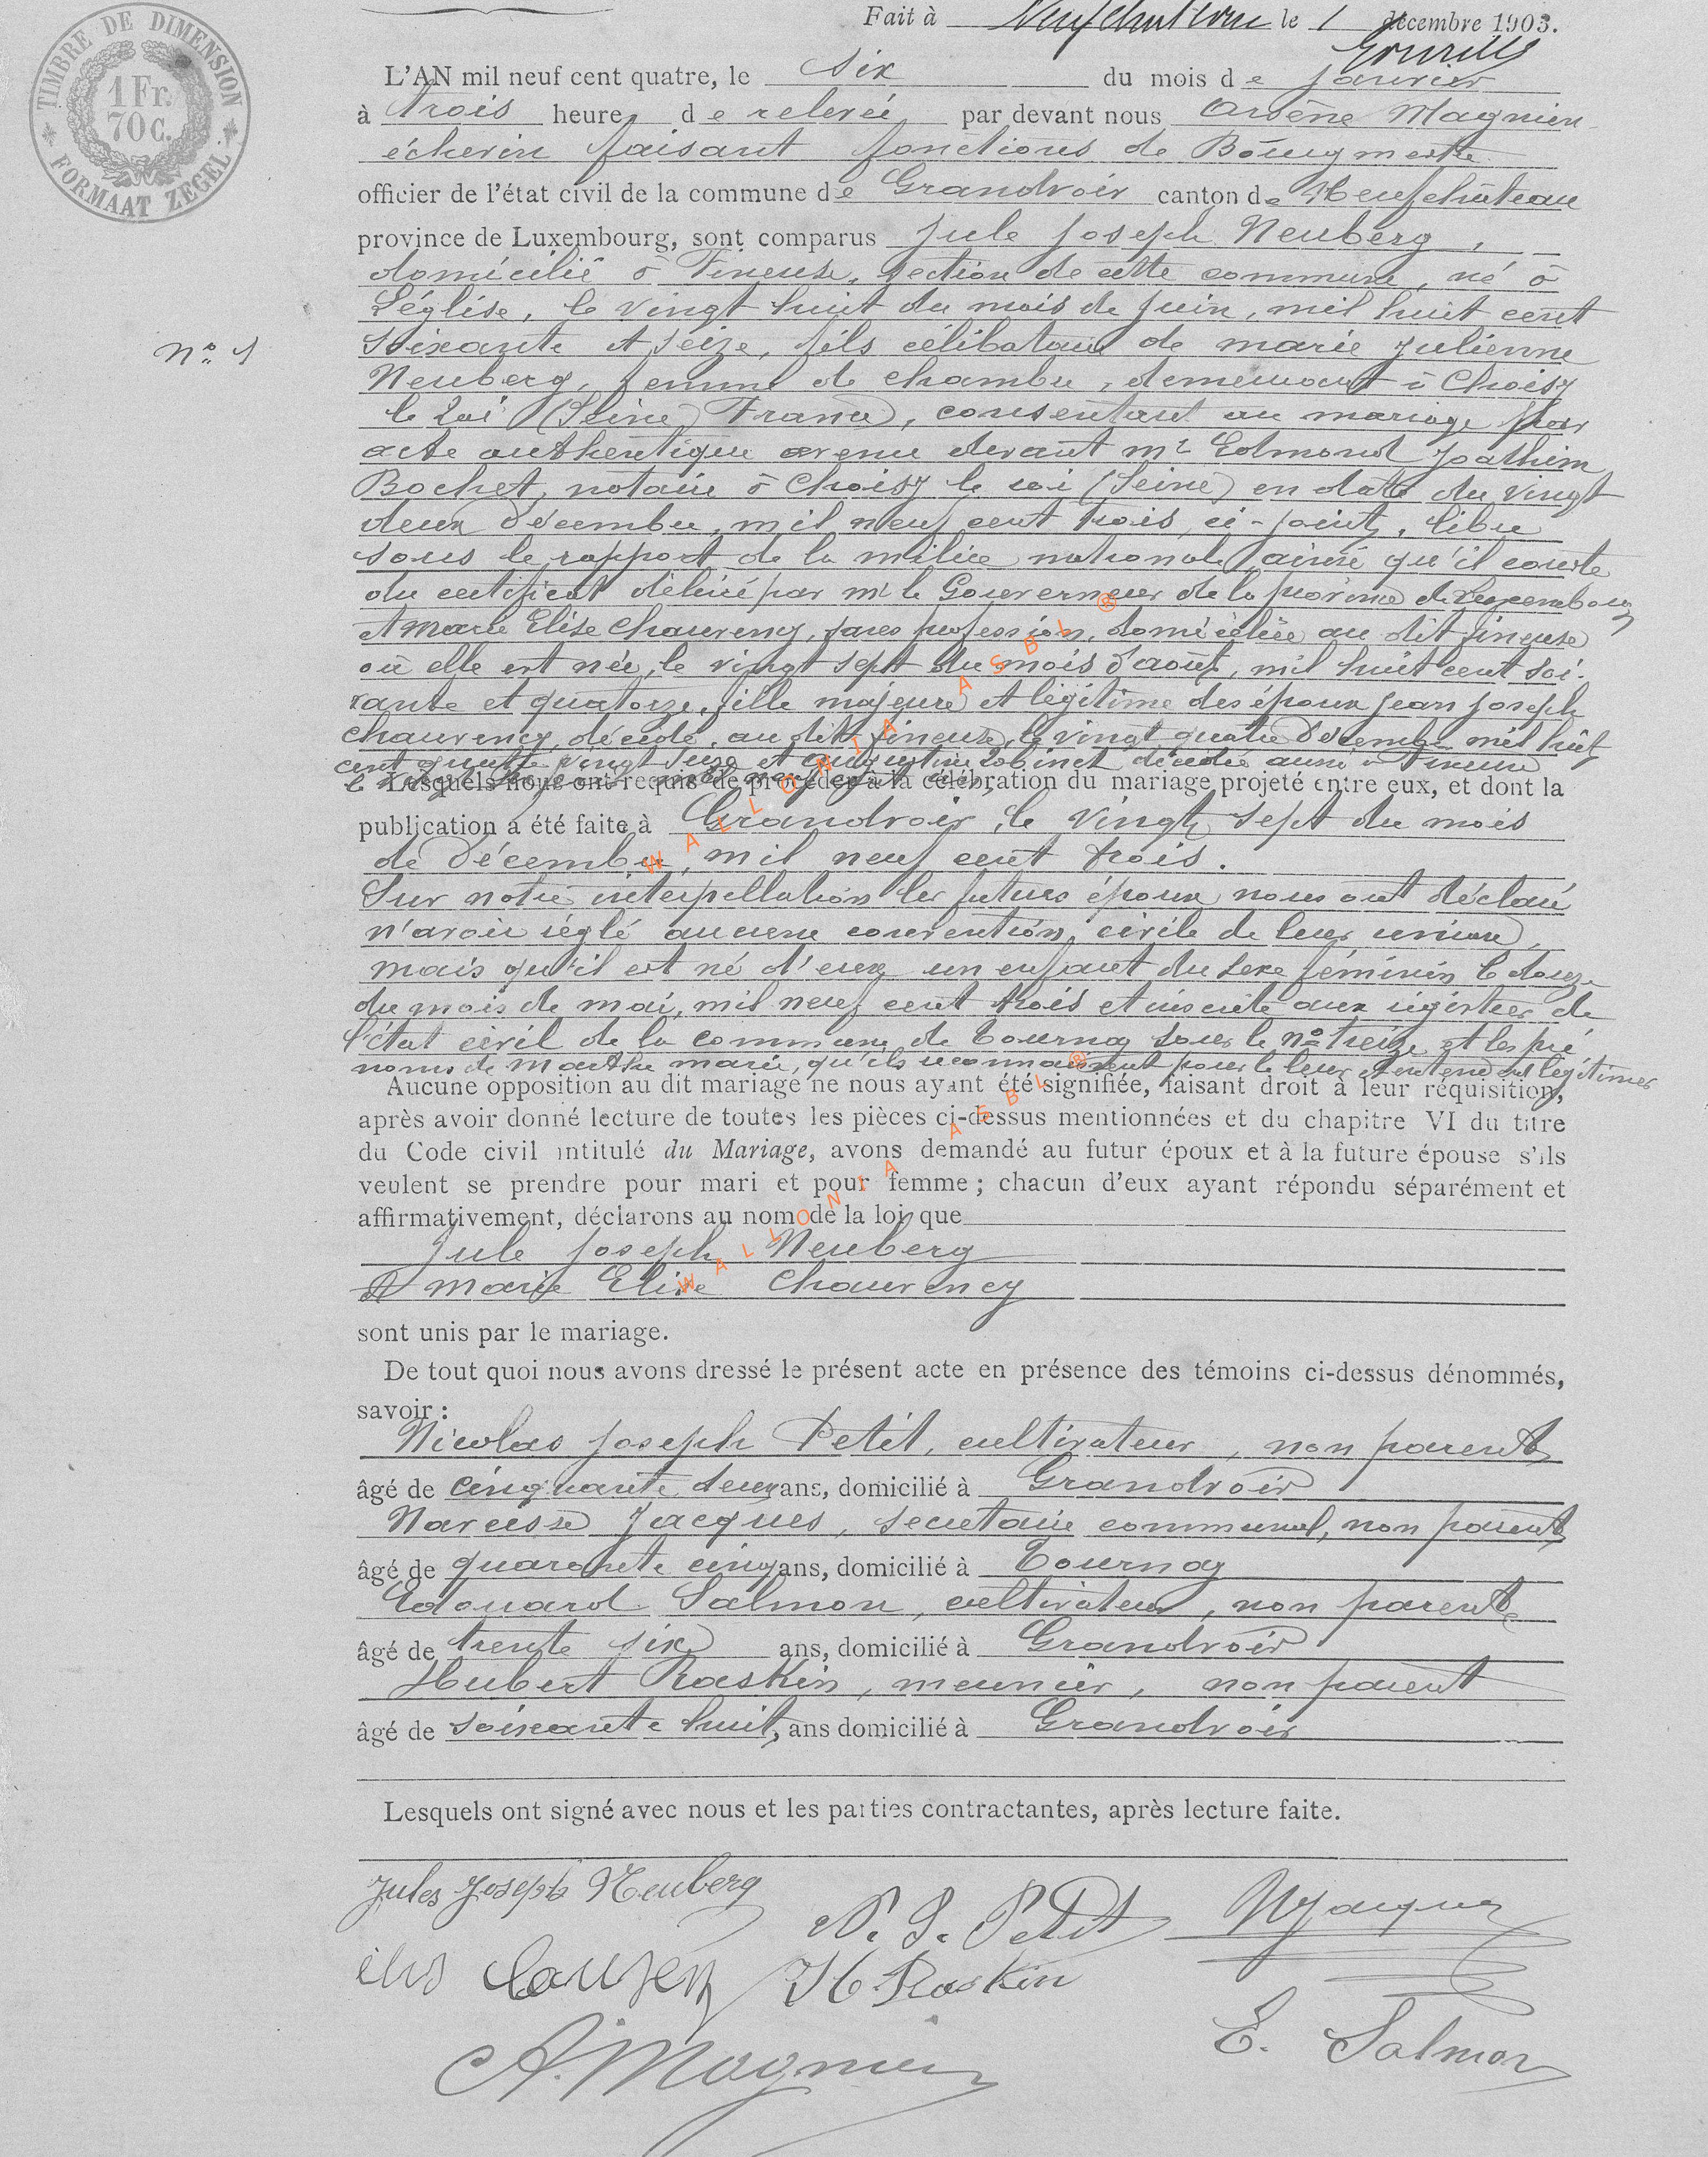 TIMBRE DE DIMENSION
1 Fr.
70 c.
FORMAAT ZEGEL
Fait à Neufchâteau le 1 décembre 1903.
L'AN mil neuf cent quatre, le six du mois de janvier
à trois heure de relevée par devant nous Arsène Magnien
écherin faisant fonctions de Bourgmestre
officier de l'état civil de la commune de Grandvoir canton de Neufchâteau
province de Luxembourg, sont comparus Jule Joseph Neuberg,
domicilié à Tineuse, section de cette commune, né à
Léglise, le vingt huit du mois de juin, mil huit cent
soixante et seize, fils célibataire de marie julienne
N° 1
Neuberg, femme de chambre, demeurant à Choisy
le Roi (Seine) France, consentant au mariage par
acte authentique avenu devant mr Edmond Joathim
Bochet, notaire à Choisy le roi (Seine) en date du vingt
deux décembre, mil neuf cent trois, ci-joint, libre
sous le rapport de la milice nationale ainsi qu'il conste
du certificat délivré par mr le Gouverneur de la province de Luxembourg
et Marie Elise Chauvency, sans profession, domiciliée au dit Tineuse
où elle est née, le vingt sept du mois d'août, mil huit cent soi-
xante et quatorze, fille majeure et légitime des époux Jean Joseph
Chauvency, décédé, au dit Tineuse, le vingt quatre décembre mil huit
cent quatre vingt seize et Robinet décédée aussi à Tineuse
Lesquels nous ont requis de procéder à la célébration du mariage projeté entre eux, et dont la
publication a été faite à Grandvoir, le vingt sept du mois
de décembre, mil neuf cent trois.
Sur notre interpellation les futurs époux nous ont déclaré
n'avoir réglé aucune convention civile de leur union,
mais qu'il est né d'eux un enfant du sexe féminin le douze
du mois de mai, mil neuf cent trois et inscrite aux registres de
l'état civil de la commune de Tournay sous le n° treize et les pré
noms de Marthe marie, qu'ils reconnaissent pour le leur et entendent légitimer
Aucune opposition au dit mariage ne nous ayant été signifiée, faisant droit à leur réquisition,
après avoir donné lecture de toutes les pièces ci-dessus mentionnées et du chapitre VI du titre
du Code civil intitulé du Mariage, avons demandé au futur époux et à la future épouse s'ils
veulent se prendre pour mari et pour femme ; chacun d'eux ayant répondu séparément et
affirmativement, déclarons au nom de la loi que
Jule Joseph Neuberg
et Marie Elise Chauvency
sont unis par le mariage.
De tout quoi nous avons dressé le présent acte en présence des témoins ci-dessus dénommés,
savoir :
Nicolas Joseph Petit, cultivateur, non parent,
âgé de cinquante deux ans, domicilié à Grandvoir
Narcisse Jacques, secrétaire communal, non parent,
âgé de quarante cinq ans, domicilié à Tournay
Edouard Salmon, cultivateur, non parent
âgé de trente six ans, domicilié à Grandvoir
Hubert Raskin, meunier, non parent
âgé de soixante huit, ans domicilié à Grandvoir
Lesquels ont signé avec nous et les parties contractantes, après lecture faite.
Jules Joseph Neuberg
N. J. Petit
NJacques
H. Raskin
E. Salmon
A. Magnien
WALLONIA ASBL ®
WALLONIA ASBL ®